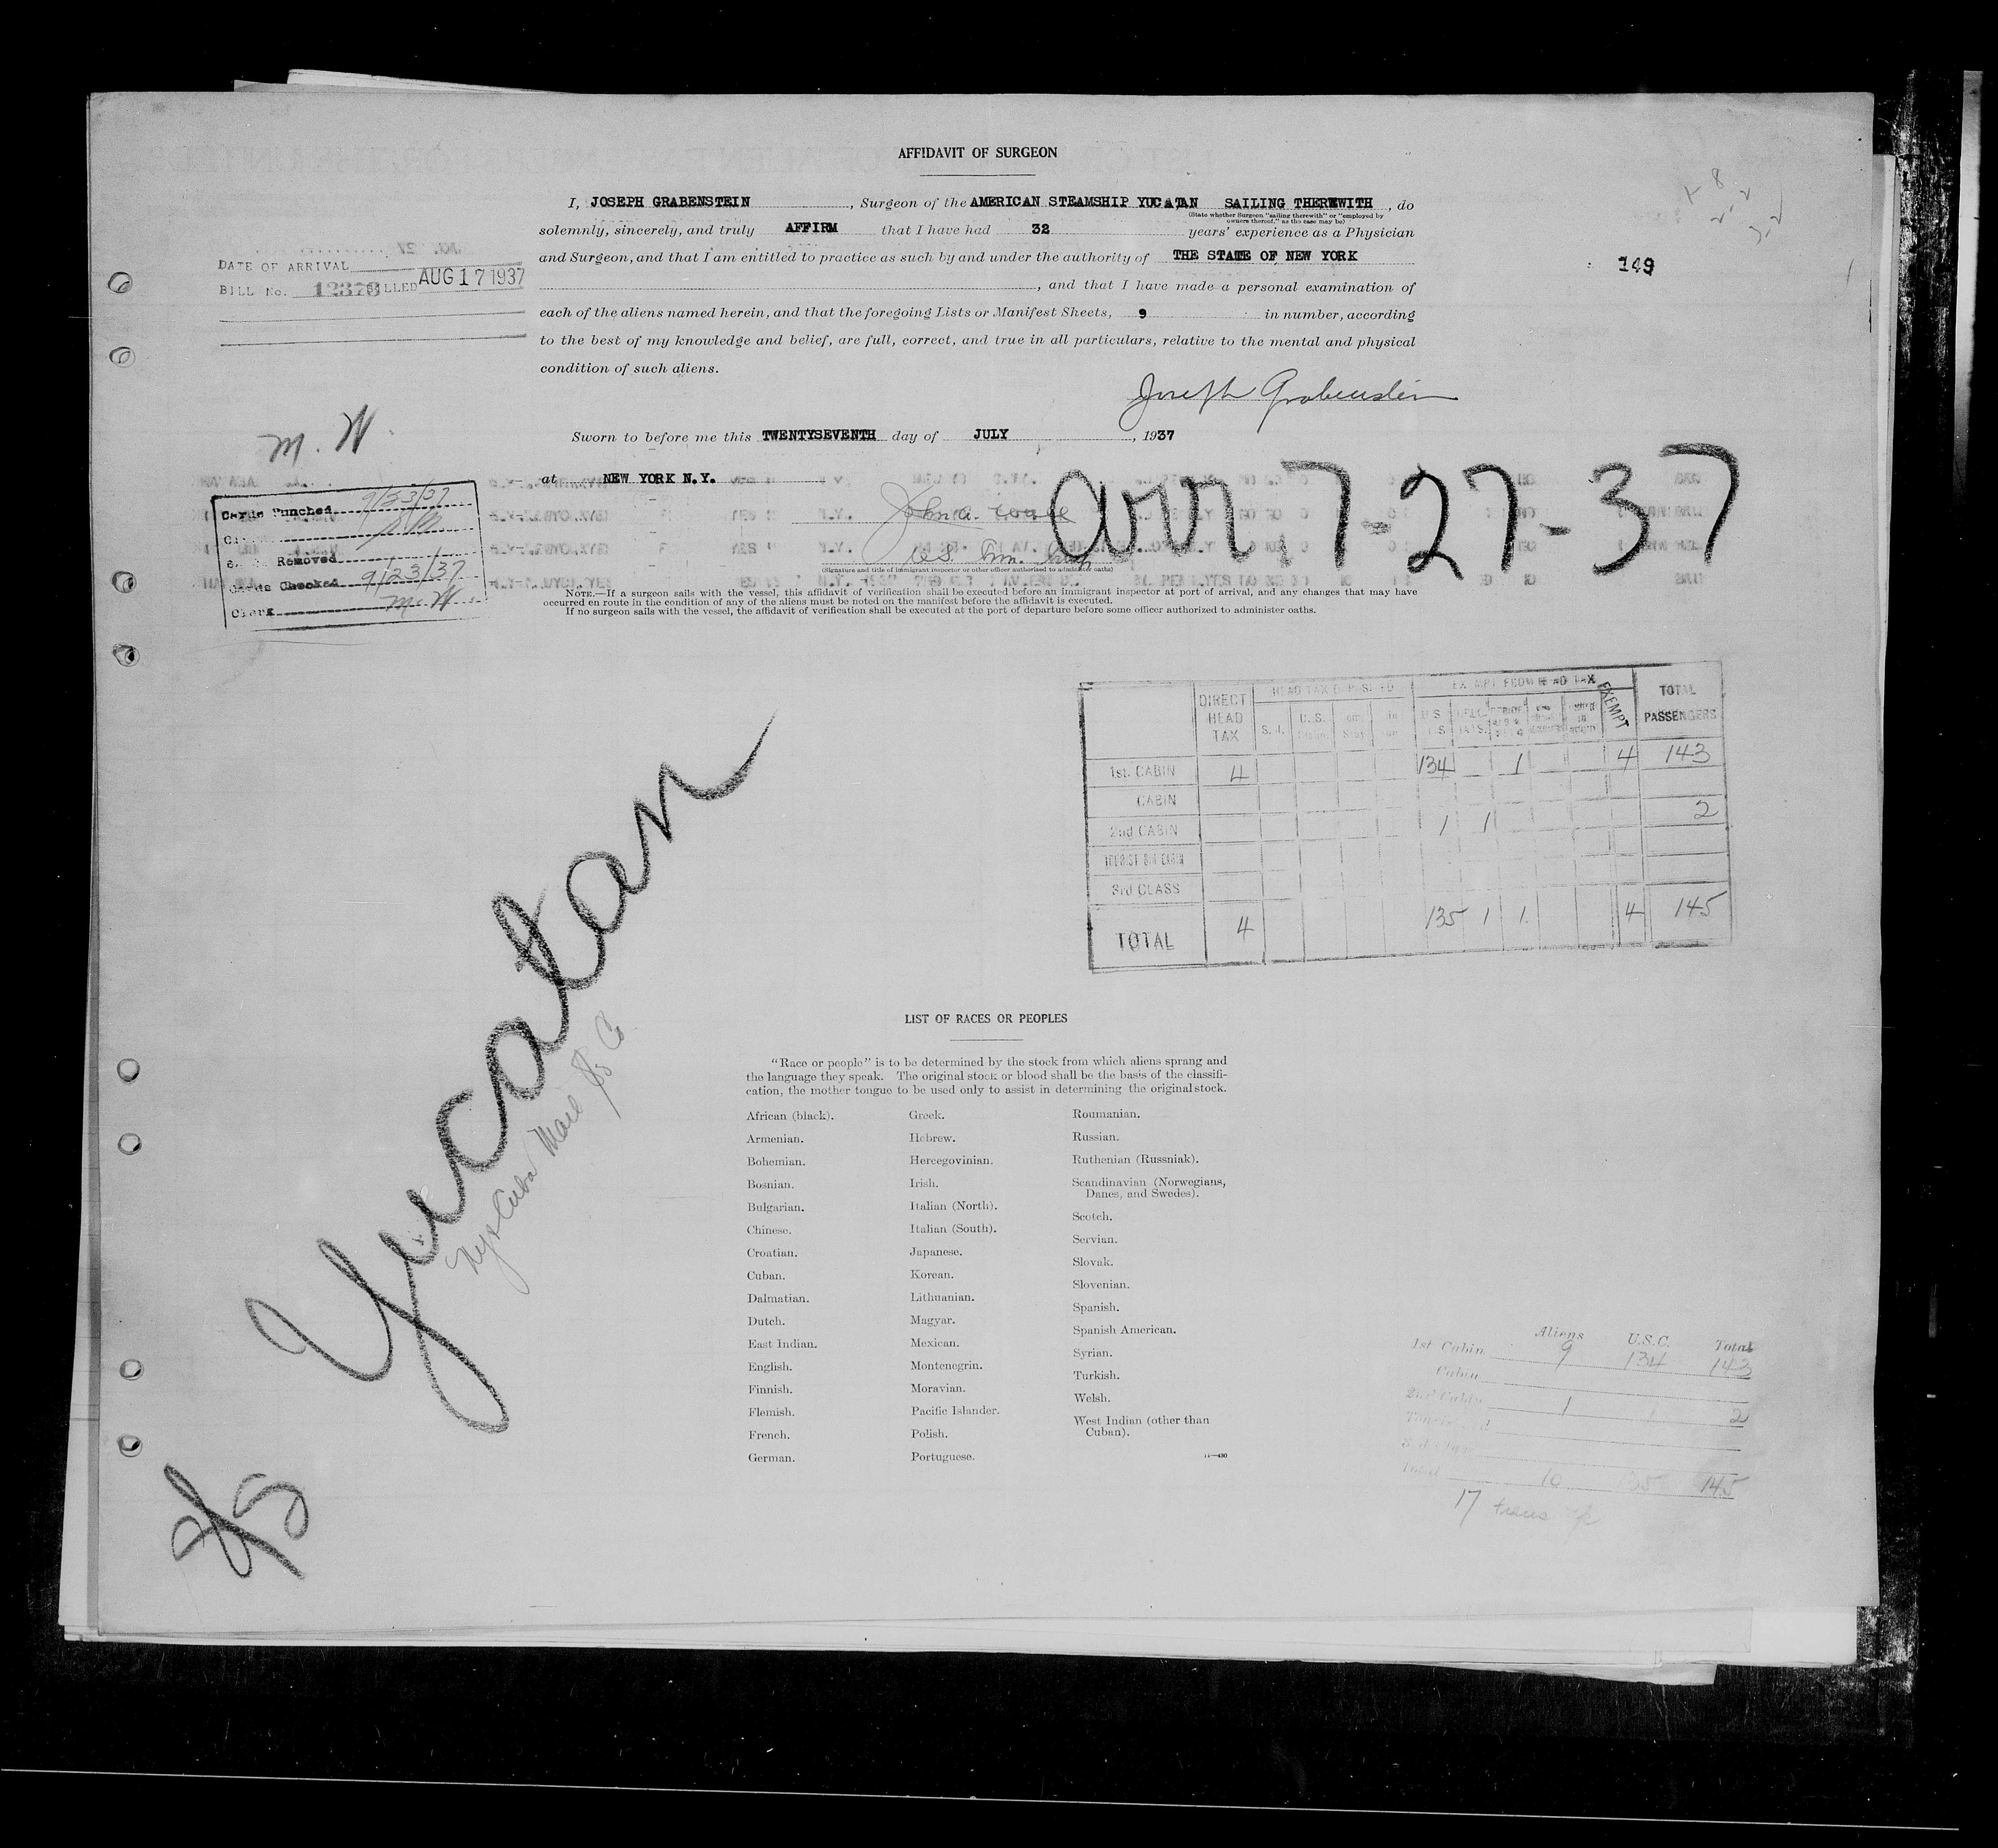 AFFIDAVIT OF SURGEON
I, JOSEPH GRABENSTEIN, Surgeon of the AMERICAN STEAMSHIP YUCATAN SAILING THEREWITH, do
(State whether Surgeon "sailing therewith" or "employed by
owners thereof," as the case may be)
solemnly, sincerely, and truly AFFIRM that I have had 32 years' experience as a Physician
and Surgeon, and that I am entitled to practice as such by and under the authority of THE STATE OF NEW YORK
, and that I have made a personal examination of
each of the aliens named herein, and that the foregoing Lists or Manifest Sheets, 9 in number, according
to the best of my knowledge and belief, are full, correct, and true in all particulars, relative to the mental and physical
condition of such aliens.
149
DATE OF ARRIVAL
BILL No. 12378 BILLED AUG 17 1937
Joseph Grabenstein
Sworn to before me this TWENTYSEVENTH day of JULY, 1937
at NEW YORK N.Y.
(Signature and title of immigrant inspector or other officer authorized to administer oaths)
arr. 7-27-37
M. W.
Cards Punched 9/23/37
Clerk
Cards Removed
Cards Checked 9/23/37
Clerk M.W.
NOTE.—If a surgeon sails with the vessel, this affidavit of verification shall be executed before an immigrant inspector at port of arrival, and any changes that may have
occurred en route in the condition of any of the aliens must be noted on the manifest before the affidavit is executed.
If no surgeon sails with the vessel, the affidavit of verification shall be executed at the port of departure before some officer authorized to administer oaths.
DIRECT HEAD TAX HEAD TAX DEPOSITED EXEMPT FROM HEAD TAX EXEMPT TOTAL PASSENGERS
S. I. U. S.
1st. CABIN 4 134 1 4 143
CABIN
2nd CABIN 1 1 2
TOURIST 3rd CABIN
3rd CLASS
TOTAL 4 135 1 1 4 145
Yucatan
Ny & Cuba Mail SS Co
SS
LIST OF RACES OR PEOPLES
"Race or people" is to be determined by the stock from which aliens sprang and
the language they speak. The original stock or blood shall be the basis of the classifi-
cation, the mother tongue to be used only to assist in determining the original stock.
African (black).
Armenian.
Bohemian.
Bosnian.
Bulgarian.
Chinese.
Croatian.
Cuban.
Dalmatian.
Dutch.
East Indian.
English.
Finnish.
Flemish.
French.
German.
Greek.
Hebrew.
Hercegovinian.
Irish.
Italian (North).
Italian (South).
Japanese.
Korean.
Lithuanian.
Magyar.
Mexican.
Montenegrin.
Moravian.
Pacific Islander.
Polish.
Portuguese.
Roumanian.
Russian.
Ruthenian (Russniak).
Scandinavian (Norwegians,
Danes, and Swedes).
Scotch.
Servian.
Slovak.
Slovenian.
Spanish.
Spanish American.
Syrian.
Turkish.
Welsh.
West Indian (other than
Cuban).
Aliens U.S.C. Total
1st Cabin 9 134 143
Cabin
2nd Cabin 1 1 2
Total 10 135 145
17 trans